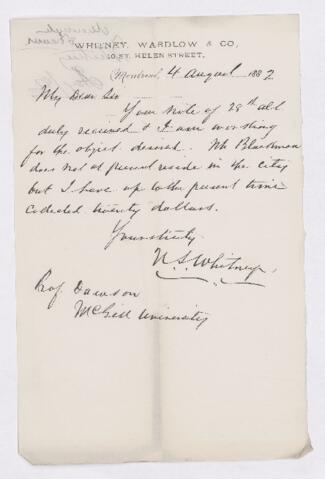 WHITNEY, WARDLOW & CO,
ST. HELEN STREET,
Montreal, 4 August 1882
My Dear Sir
Your Note of 28th ult
duly received & I am working
for the object desired. Mr
does not at present reside in the city
but I have up to the present time
collected twenty dollars.
Yours truly
N. S. Whitney
Prof. Dawson
McGill University